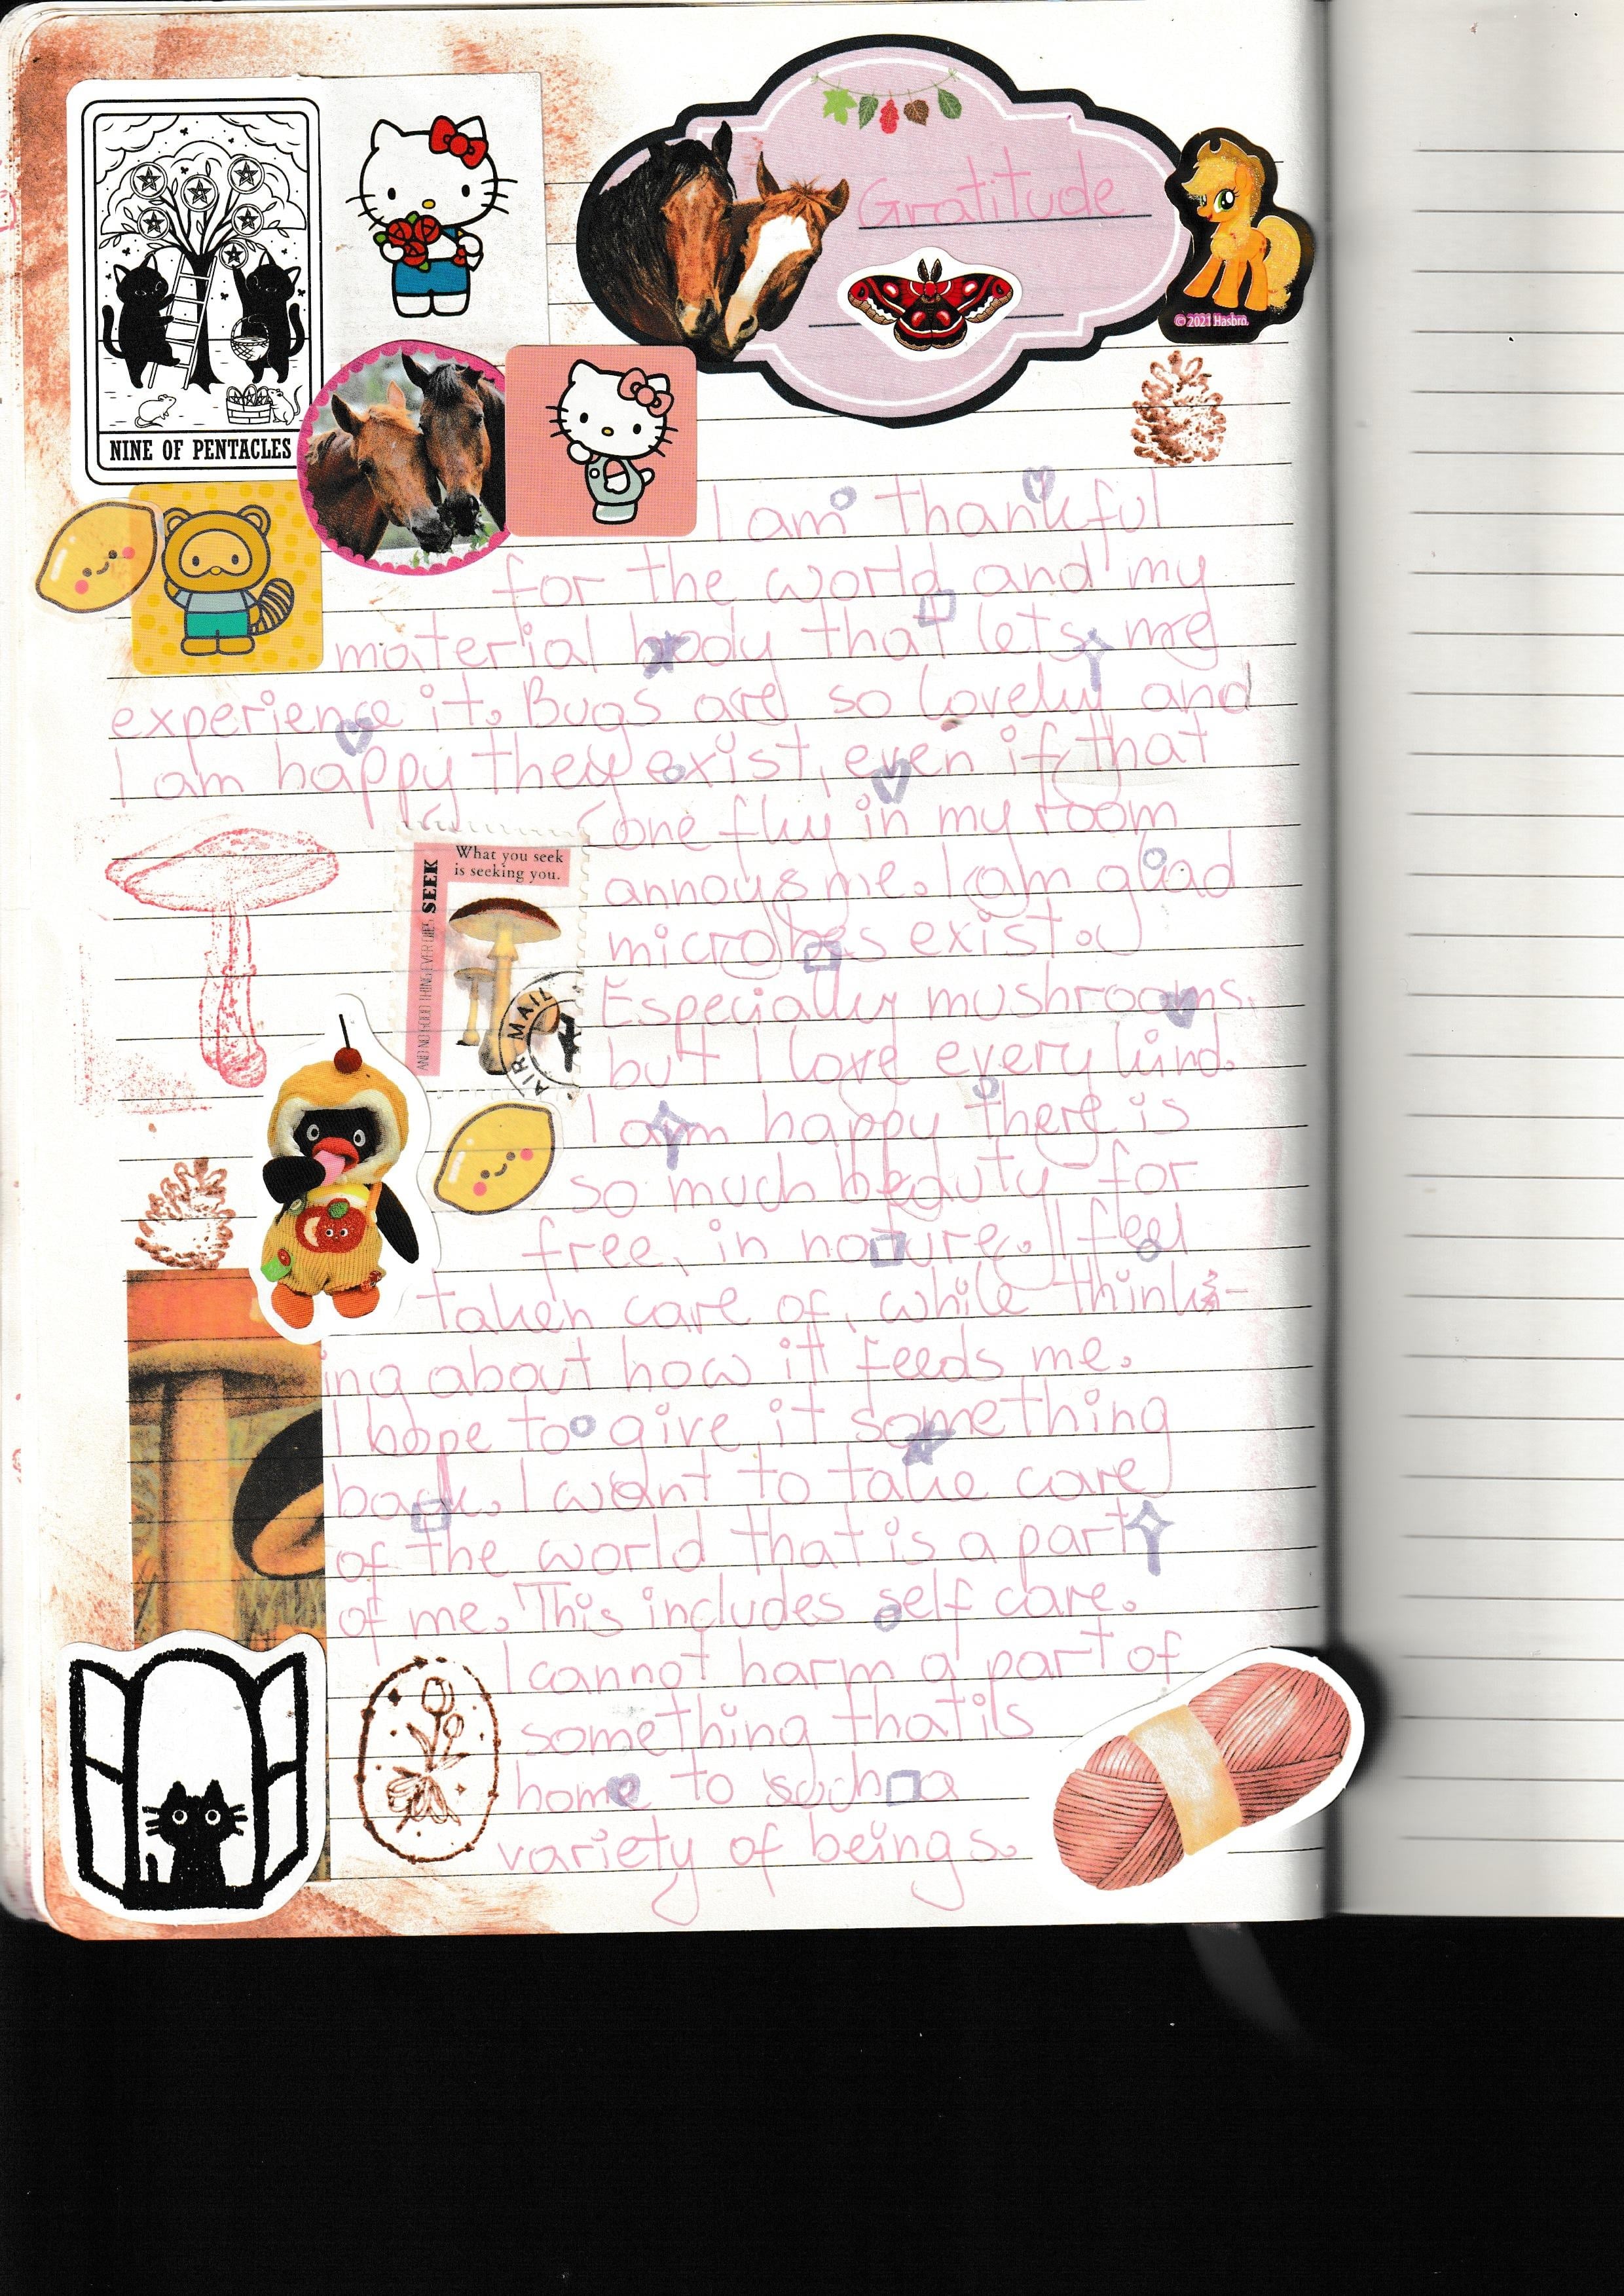 Gratitude
© 2021 Hasbro.
NINE OF PENTACLES
I am thankful
for the world and my
material body that lets me
experience it. Bugs are so lovely and
I am happy they exist, even if that
one fly in my room
annoys me. I am glad
microbes exist.
Especially mushrooms,
but I love every kind.
I am happy there is
so much beauty for
free, in nature. I feel
taken care of, while think-
ing about how it feeds me.
I hope to give it something
back. I want to take care
of the world that is a part
of me. This includes self care.
I cannot harm a part of
something that is
home to such a
variety of beings.
What you seek
is seeking you.
SEEK
AND NO GOOD THING EVER DIES.
AIR MAIL